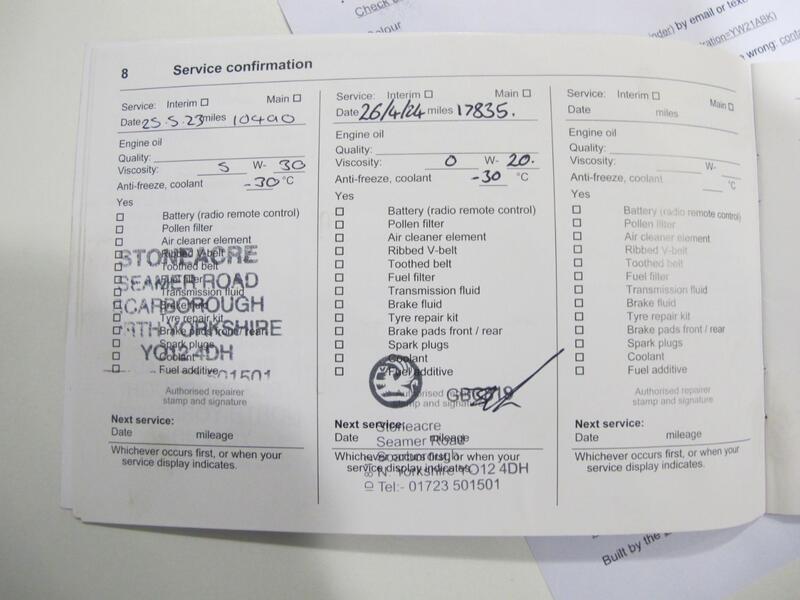 Check
Colour
by email or text
YW21ABK)
wrong: conta
8 Service confirmation
Service: Interim Main
Date 25.5.23 miles 10490
Engine oil
Quality:
Viscosity: 5 W- 30
Anti-freeze, coolant -30 °C
Yes
Battery (radio remote control)
Pollen filter
Air cleaner element
Ribbed V-belt
Toothed belt
Fuel filter
Transmission fluid
Brake fluid
Tyre repair kit
Brake pads front / rear
Spark plugs
Coolant
Fuel additive
STONEACRE
SEAMER ROAD
SCARBOROUGH
RTH YORKSHIRE
YO12 4DH
501501
Authorised repairer
stamp and signature
Next service:
Date mileage
Whichever occurs first, or when your
service display indicates.
Service: Interim Main
Date 26/4/24 miles 17835.
Engine oil
Quality:
Viscosity: 0 W- 20.
Anti-freeze, coolant -30 °C
Yes
Battery (radio remote control)
Pollen filter
Air cleaner element
Ribbed V-belt
Toothed belt
Fuel filter
Transmission fluid
Brake fluid
Tyre repair kit
Brake pads front / rear
Spark plugs
Coolant
Fuel additive
Authorised
stamp and signature
Next service:
Date mileage
Whichever occurs first, or when your
service display indicates.
Stoneacre
Seamer Road
Scarborough
N. Yorkshire YO12 4DH
Tel:- 01723 501501
Service: Interim Main
Date miles
Engine oil
Quality:
Viscosity: W-
Anti-freeze, coolant °C
Yes
Battery (radio remote control)
Pollen filter
Air cleaner element
Ribbed V-belt
Toothed belt
Fuel filter
Transmission fluid
Brake fluid
Tyre repair kit
Brake pads front / rear
Spark plugs
Coolant
Fuel additive
Authorised repairer
stamp and signature
Next service:
Date mileage
Whichever occurs first, or when your
service display indicates.
Built by the